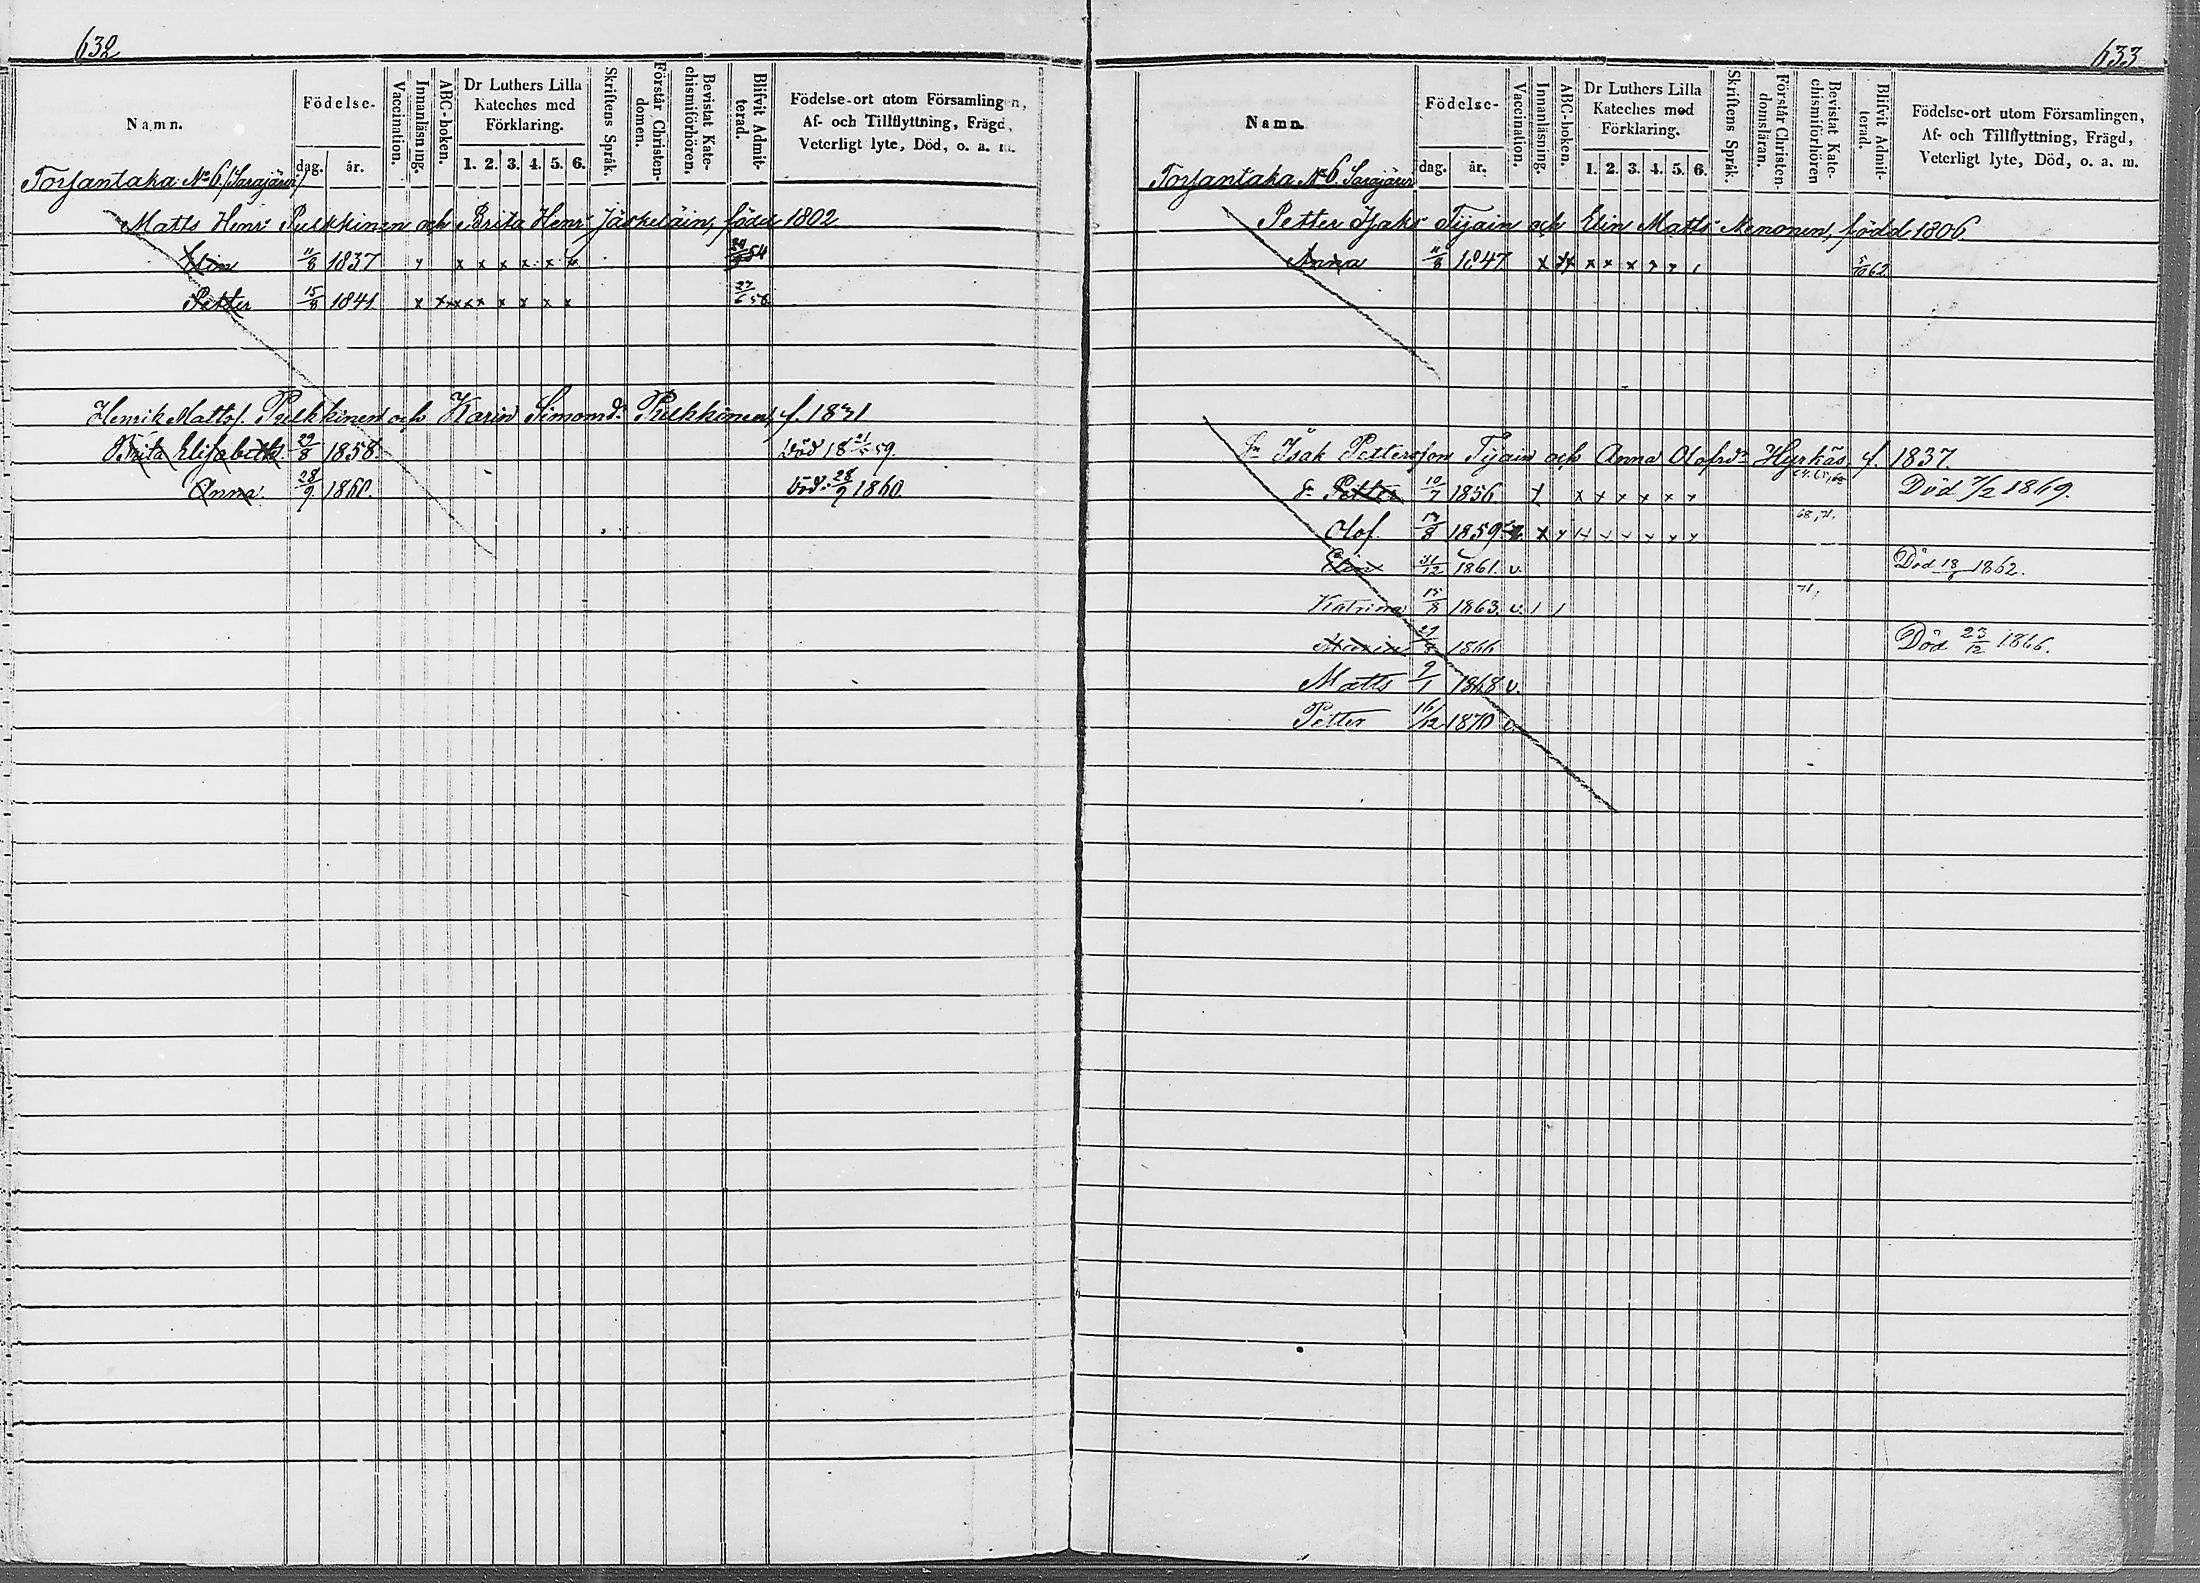 632
Namn.
Födelse-
dag. år.
Vaccination.
Innanläsning.
ABC-boken.
Dr Luthers Lilla
Kateches med
Förklaring.
1. 2. 3. 4. 5. 6.
Skriftens Språk.
Förstår Christen-
domen.
Bevistat Kate-
chismiförhören.
Blifvit Admit-
terad.
Födelse-ort utom Församlingen,
Af- och Tillflyttning, Frägd,
Veterligt lyte, Död, o. a. m.
Torsantaka No 6. (Sarajärvi)
Matts Henr: Pulkkinen och Brita Henr: Jäskeläin, född 1802
Elin 11/8 1837 x x x x x x x
Petter 15/8 1841 x x x x x x x x x x 27/6 58
Henrik Mattss. Pulkkinen och Karin Simonsdr Pulkkinen, f. 1831
Brita Elisabeth. 29/8 1858 Död 18 21/5 59.
Anna 28/9 1860. Död: 28/9 1860.
633
Namn.
Födelse-
dag. år.
Vaccination.
Innanläsning.
ABC-boken.
Dr Luthers Lilla
Kateches med
Förklaring.
1. 2. 3. 4. 5. 6.
Skriftens Språk.
Förstår Christen-
domsläran.
Bevistat Kate-
chismiförhören
Blifvit Admit-
terad.
Födelse-ort utom Församlingen,
Af- och Tillflyttning, Frägd,
Veterligt lyte, Död, o. a. m.
Torsantaka No 6. Sarajärvi
Petter Isaks: Tijain och Elin Matts: Nenonen, född 1806.
Anna 11/8 1847 x x x x x x 62
Isak Pettersson Tijain och Anna Olofsdr Hyrkäs f. 1837.
Petter 10/7 1856 x x x x x x x Död 7/2 1869.
68, 71.
Olof 17/8 1859 x x x x x x x x
Elin 31/12 1861. v. Död 18/6 1862.
71.
Katrina 15/8 1863. v. / /
Maria 1866 Död 23/12 1866.
Matts 9/1 1868 v.
Petter 16/12 1870 v.